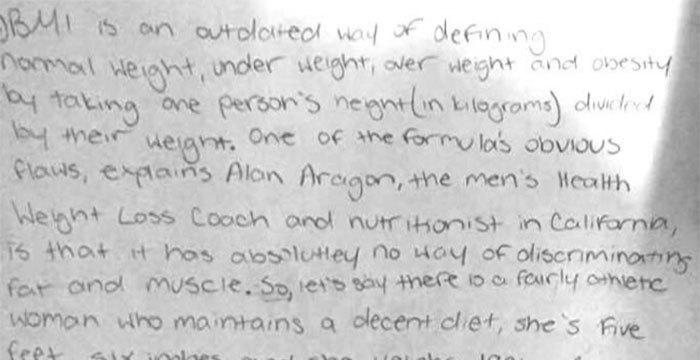 )BMI is an outdated way of defining
normal weight, under weight, over weight and obesity
by taking one person's height (in kilograms) divided
by their weight. One of the formula's obvious
flaws, explains Alan Aragon, the men's Health
Weight Loss Coach and nutritionist in California,
is that it has absolutley no way of discriminating
fat and muscle. So, let's say there is a fairly athletic
woman who maintains a decent diet, she's Five
feet six inches and she weighs